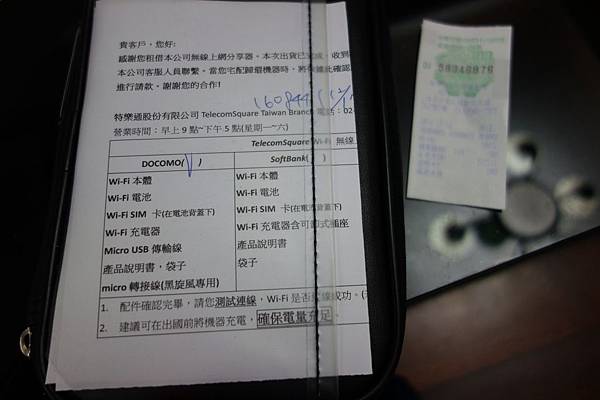 貴客戶，您好:
感謝您租借本公司無線上網分享器。本次出貨已完成，收到
本公司客服人員聯繫。當您宅配歸還機器時，將依據此確認
進行請款。謝謝您的合作!
特樂通股份有限公司 TelecomSquare Taiwan Branch 電話：02-
營業時間：早上 9 點~下午 5 點(星期一~六)
TelecomSquare Wi-Fi 無線
DOCOMO(V) SoftBank( )
Wi-Fi 本體 Wi-Fi 本體
Wi-Fi 電池 Wi-Fi 電池
Wi-Fi SIM 卡(在電池背蓋下) Wi-Fi SIM 卡(在電池背蓋下)
Wi-Fi 充電器 Wi-Fi 充電器含可卸式插座
Micro USB 傳輸線 產品說明書
產品說明書，袋子 袋子
micro 轉接線(黑旋風專用)
1. 配件確認完畢，請您測試連線，Wi-Fi 是否連線成功。
2. 建議可在出國前將機器充電，確保電量充足。